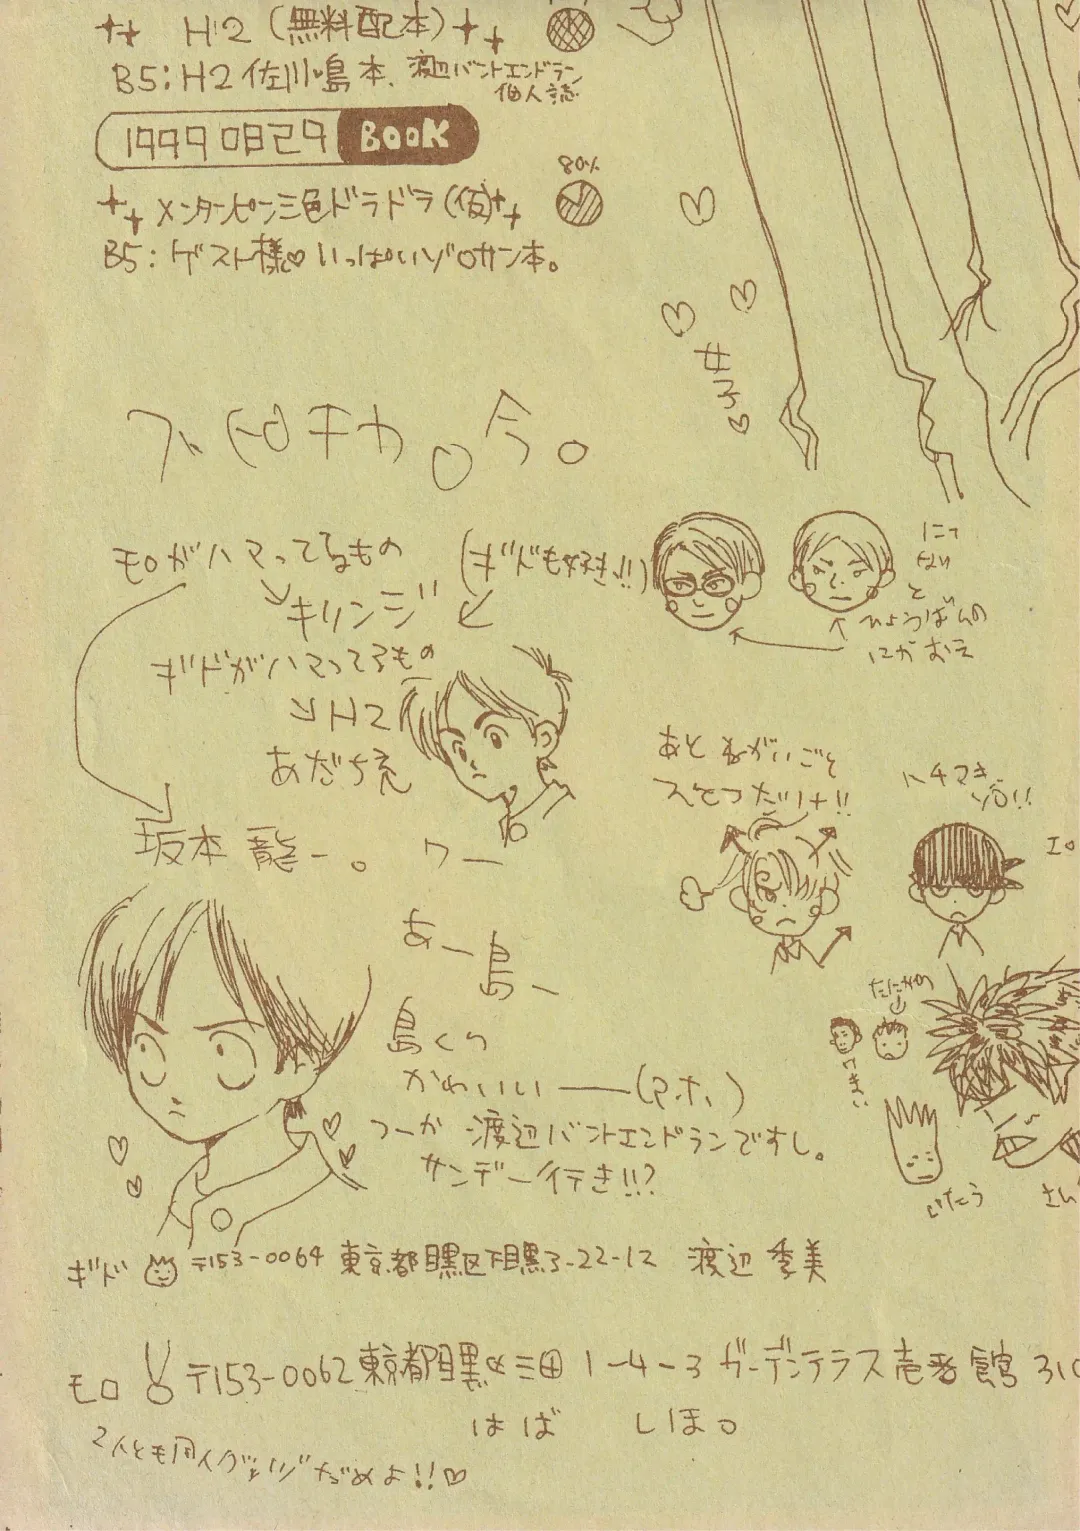 H2(無料配本)
B5:H2佐川・島本、渡辺バントエンドラン
個人誌
19990829 BOOK
80%
メンタンピン三色ドラドラ(仮)
B5:ゲスト様♡いっぱいゾロサン本。
♡
♡
♡
女子♡
今。
モロがハマってるもの
(ギドも好き!!)
キリンジ
ギドがハマってるもの
H2
あだち充
坂本龍一。
にて
ない
と
ひょうばんの
にがおえ
あとねがいごと
ひとつだけ!!
ハチマキ
ゾロ!!
エロ
あー島、
島くん
かわいいー(アホ)
つーか渡辺バントエンドランですし。
サンデー行き!!?
たにがわ
さん
ギド 〒153-0064 東京都目黒区下目黒3-22-12 渡辺季美
モロ 〒153-0062東京都目黒区三田1-4-3ガーデンテラス壱番館310
はば しほ。
2人とも同人グッズだめよ!!♡